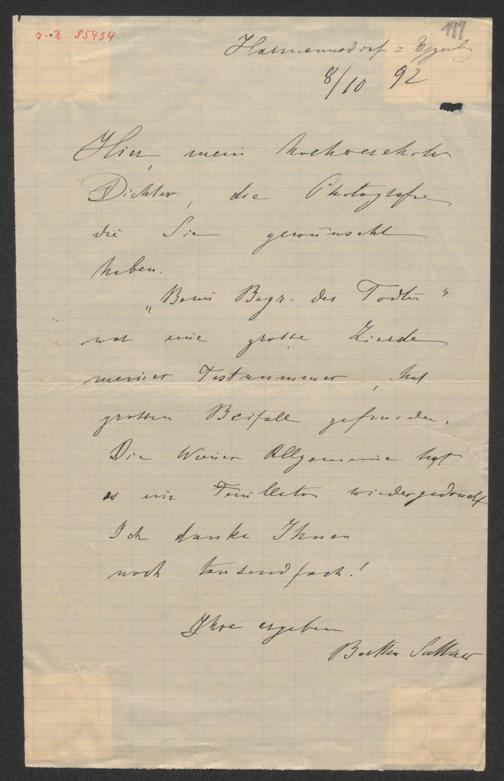 J. N. 85434
197
Harmannsdorf = Eggenbg
8/10 92
Hier, mein hochverehrter
Dichter, die Photografie
die Sie gewünscht
haben.
„Beim Begr. der Todten“
war eine große Zierde
meiner Festnummer, hat
großen Beifall gefunden.
Die Wiener Allgemeine hat
es im Feuilleton wiedergedruckt
Ich danke Ihnen
noch tausendfach!
Ihre ergebene
Bertha Suttner